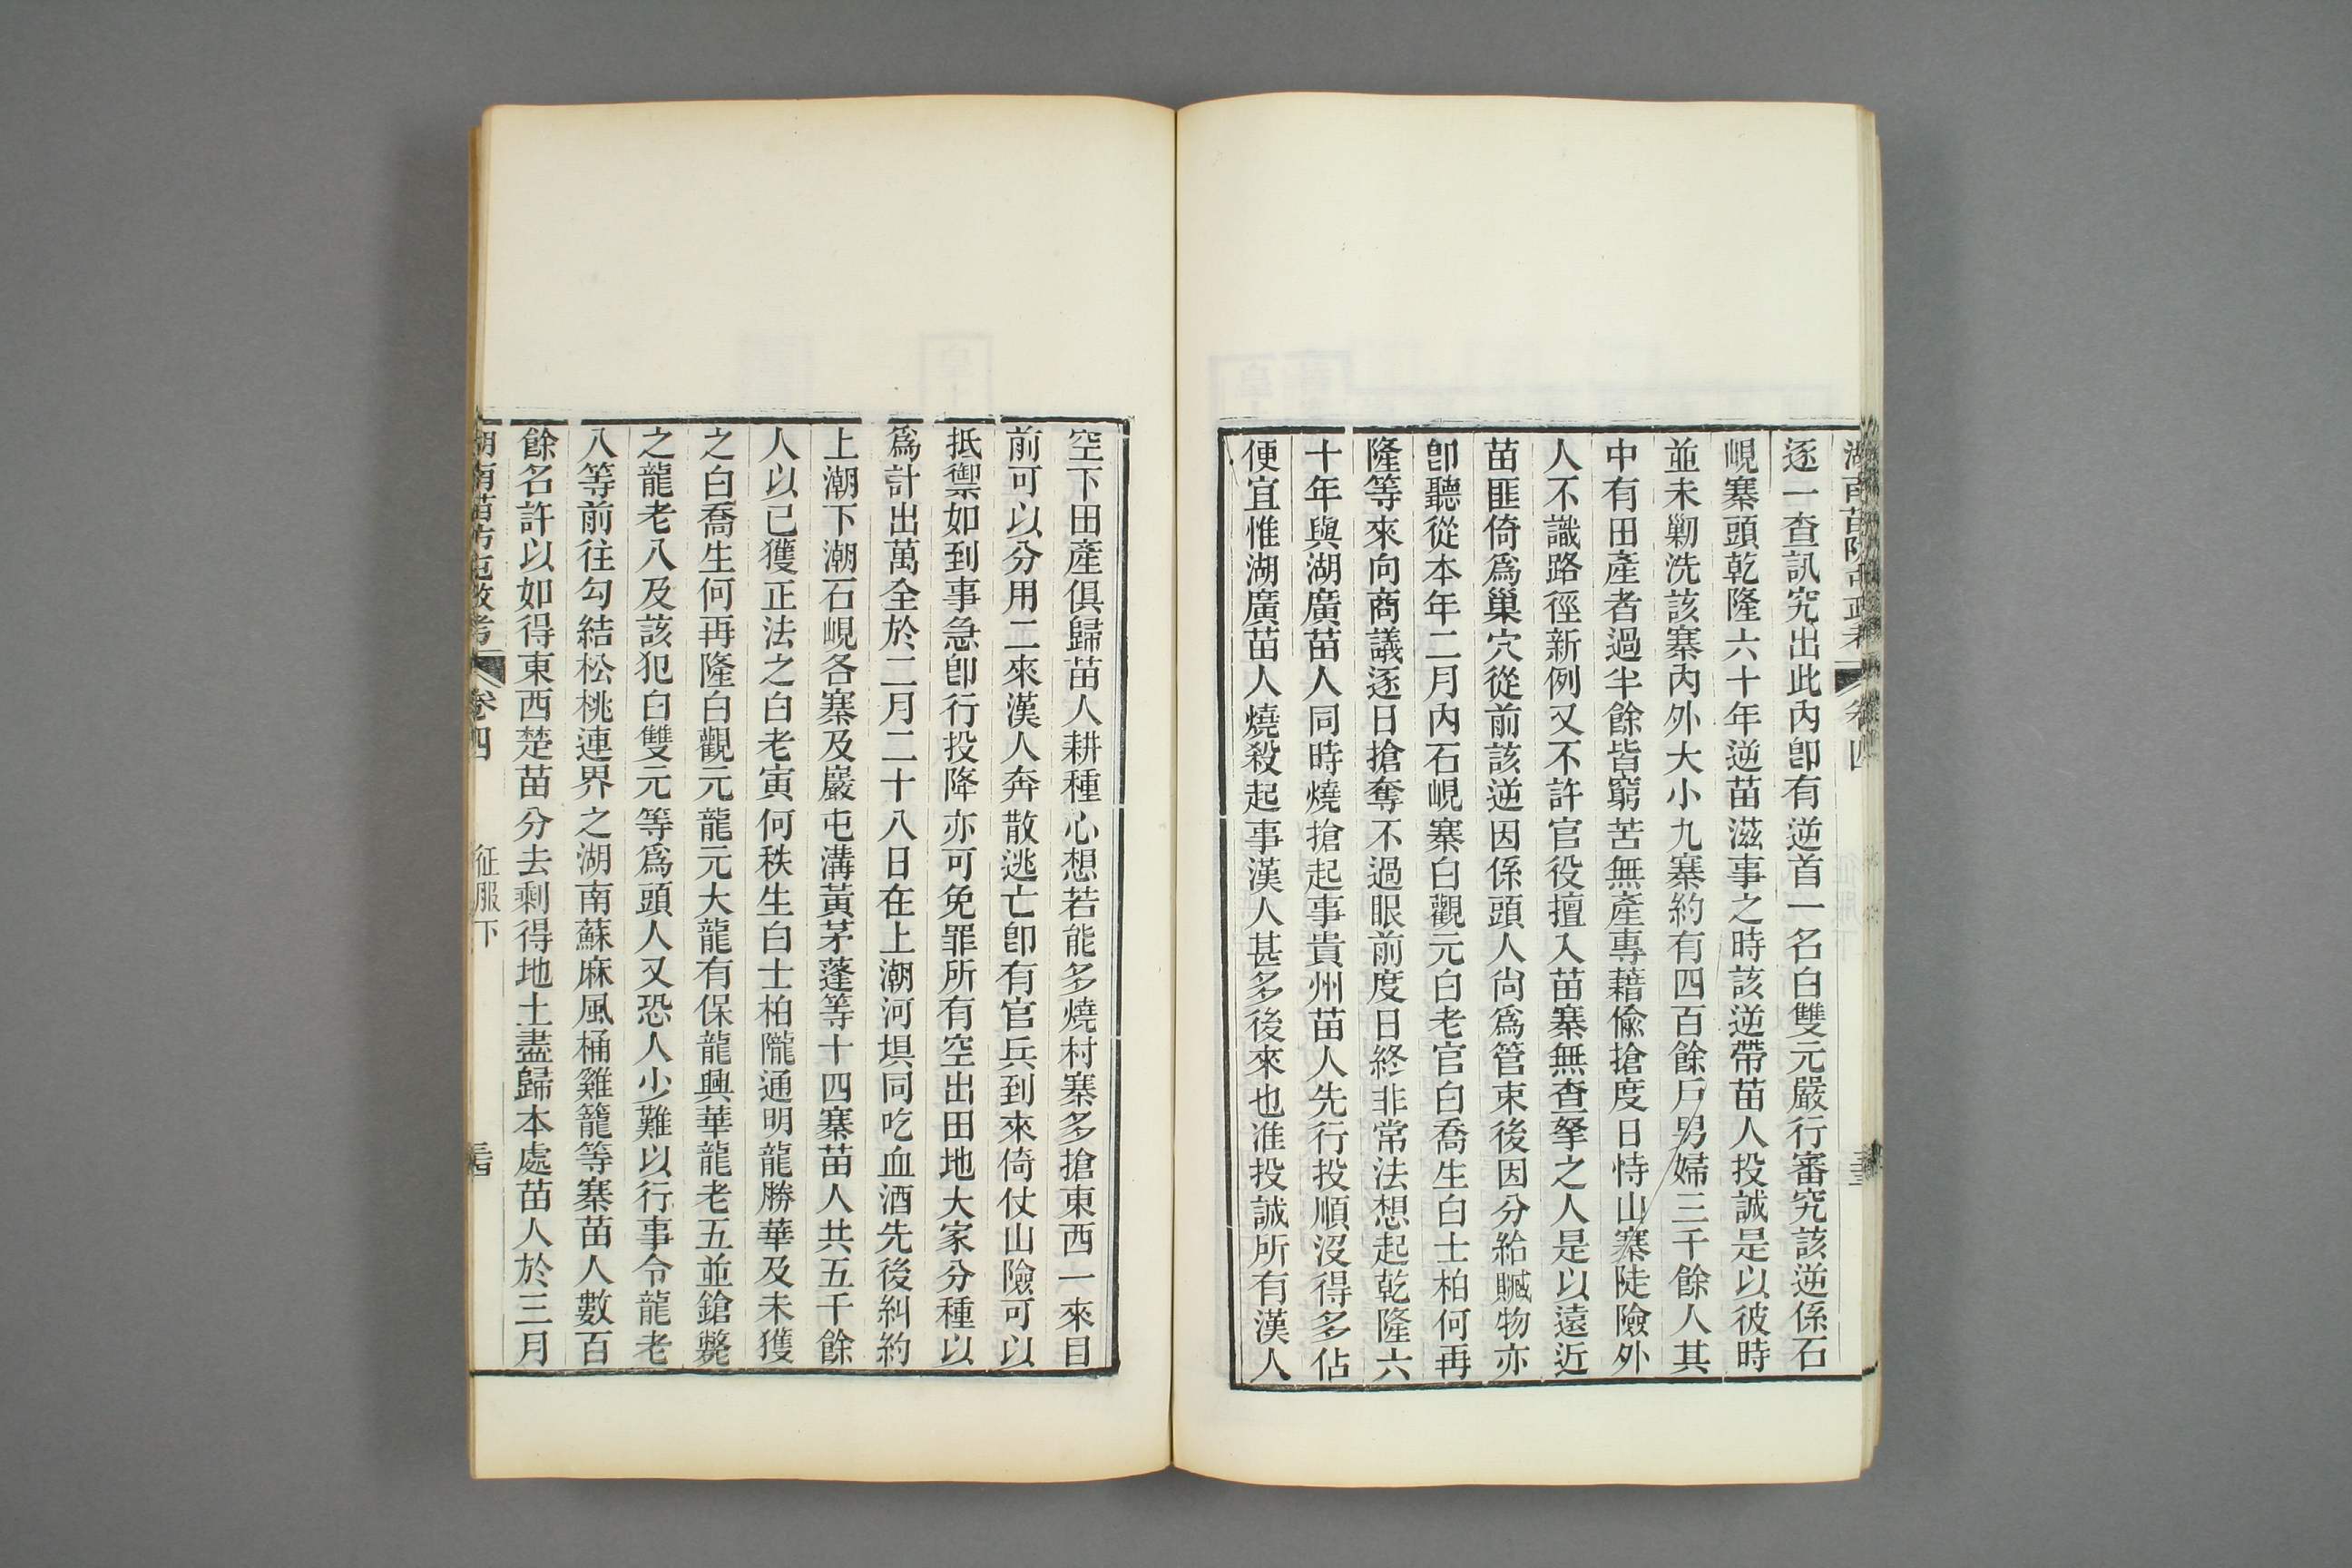 湖南苗防屯政考
卷四
逐一查訊究出此內卽有逆首一名白雙元嚴行審究該逆係石
峴寨頭乾隆六十年逆苗滋事之時該逆帶苗人投誠是以彼時
並未剿洗該寨內外大小九寨約有四百餘戶男婦三千餘人其
中有田產者過半餘皆窮苦無產專藉偸搶度日恃山寨陡險外
人不識路徑新例又不許官役擅入苗寨無查拏之人是以遠近
苗匪倚爲巢穴從前該逆因係頭人尙爲管束後因分給贓物亦
卽聽從本年二月內石峴寨白觀元白老官白喬生白士柏何再
隆等來向商議逐日搶奪不過眼前度日終非常法想起乾隆六
十年與湖廣苗人同時燒搶起事貴州苗人先行投順沒得多佔
便宜惟湖廣苗人燒殺起事漢人甚多後來也准投誠所有漢人
空下田產俱歸苗人耕種心想若能多燒村寨多搶東西一來目
前可以分用二來漢人奔散逃亡卽有官兵到來倚仗山險可以
抵禦如到事急卽行投降亦可免罪所有空出田地大家分種以
爲計出萬全於二月二十八日在上潮河垻同吃血酒先後糾約
上潮下潮石峴各寨及巖屯溝黃茅蓬等十四寨苗人共五千餘
人以已獲正法之白老寅何秩生白士柏隴通明龍勝華及未獲
之白喬生何再隆白觀元龍元大龍有保龍興華龍老五並鎗斃
之龍老八及該犯白雙元等爲頭人又恐人少難以行事令龍老
八等前往勾結松桃連界之湖南蘇麻風桶雞籠等寨苗人數百
餘名許以如得東西楚苗分去剩得地土盡歸本處苗人於三月
湖南苗防屯政考
卷四
征服下